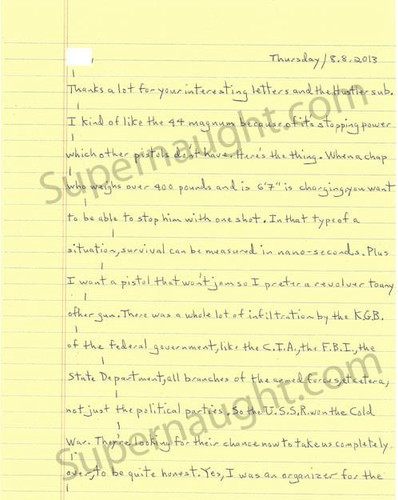 Thursday/8.8.2013
Thanks a lot for your interesting letters and the Hustler sub.
I kind of like the 44 magnum because of it's stopping power
which other pistols don't have. Here's the thing. When a chap
who weighs over 400 pounds and is 6'7" is charging, you want
to be able to stop him with one shot. In that type of a
situation, survival can be measured in nano-seconds. Plus
I want a pistol that won't jam so I prefer a revolver to any
other gun. There was a whole lot of infiltration by the K.G.B.
of the federal government, like the C.I.A., the F.B.I., the
State Department, all branches of the armed forces, et cetera,
not just the political parties. So the U.S.S.R. won the Cold
War. They're looking for their chance now to take us completely
over, to be quite honest. Yes, I was an organizer for the
Supernaught.com
Supernaught.com
Supernaught.com